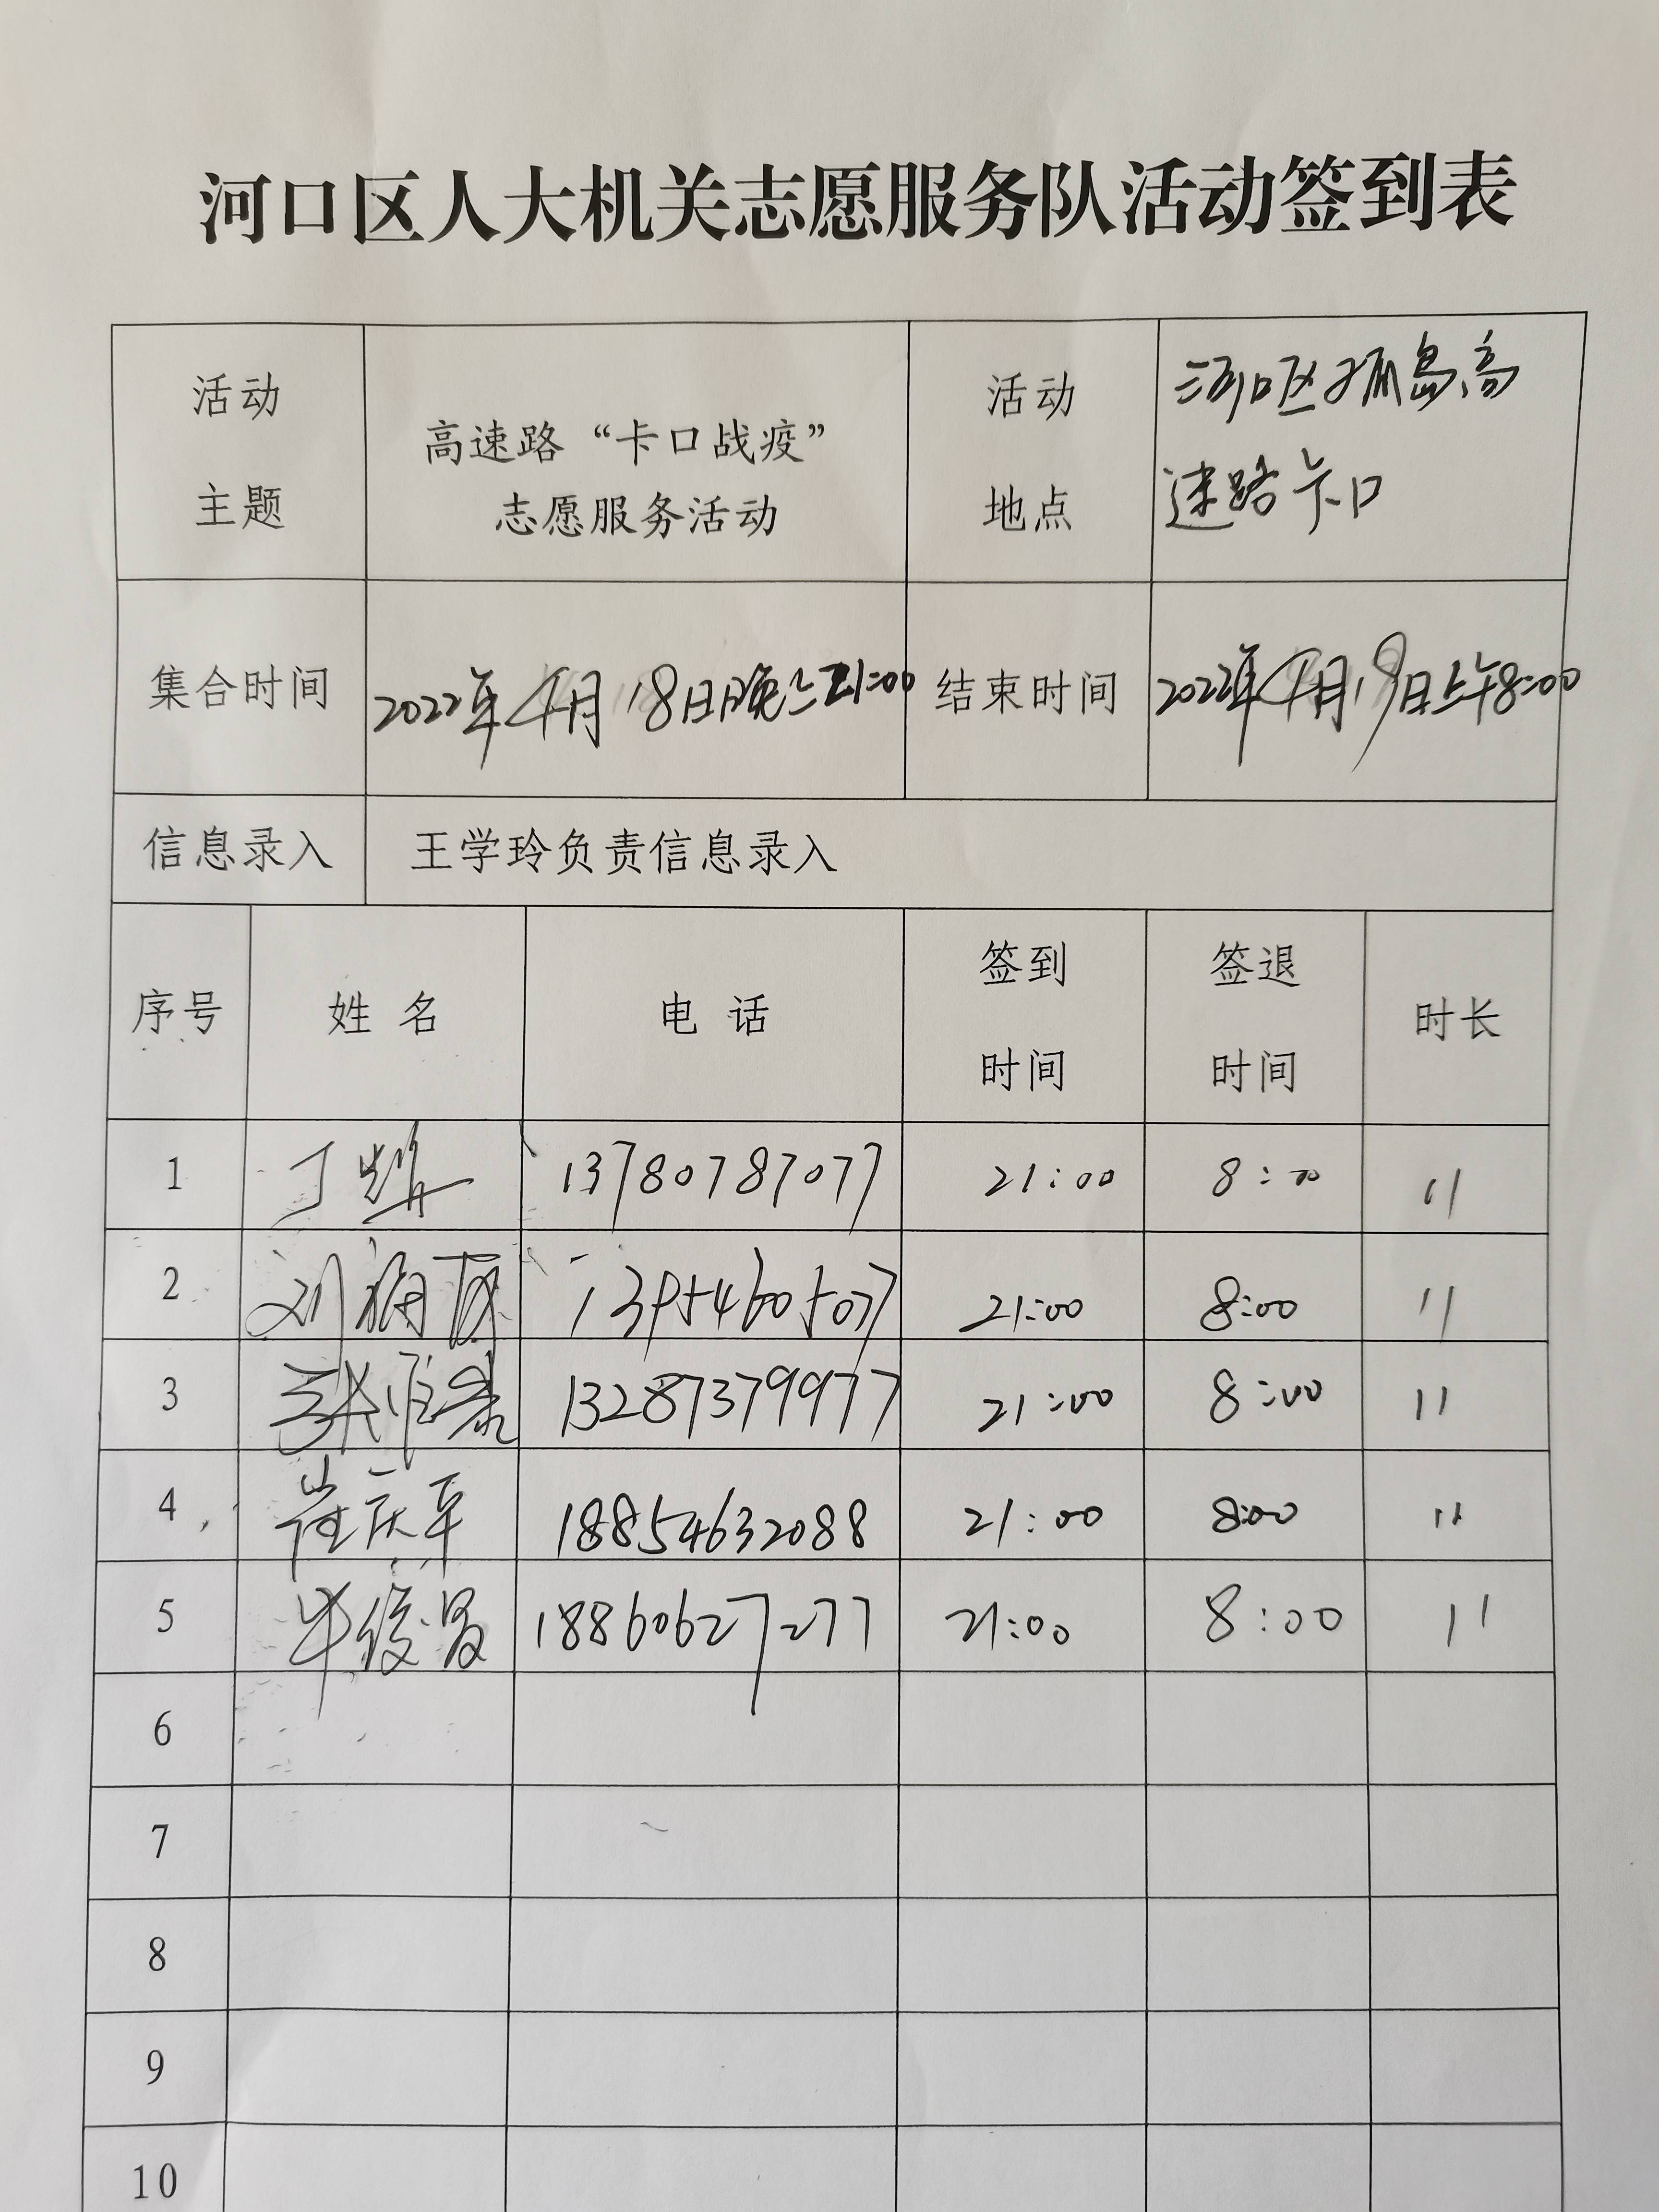 河口区人大机关志愿服务队活动签到表
活动
主题
高速路“卡口战疫”
志愿服务活动
活动
地点
河口区孤岛高
速路卡口
集合时间
2022年4月18日晚上21:00
结束时间
2022年4月19日上午8:00
信息录入
王学玲负责信息录入
序号
姓 名
电 话
签到
时间
签退
时间
时长
1
丁
13780787077
21:00
8:00
11
2
刘
13954605077
21:00
8:00
11
3
张
13287379977
21:00
8:00
11
4
崔庆军
18854632088
21:00
8:00
11
5
毕俊
18860627277
21:00
8:00
11
6
7
8
9
10